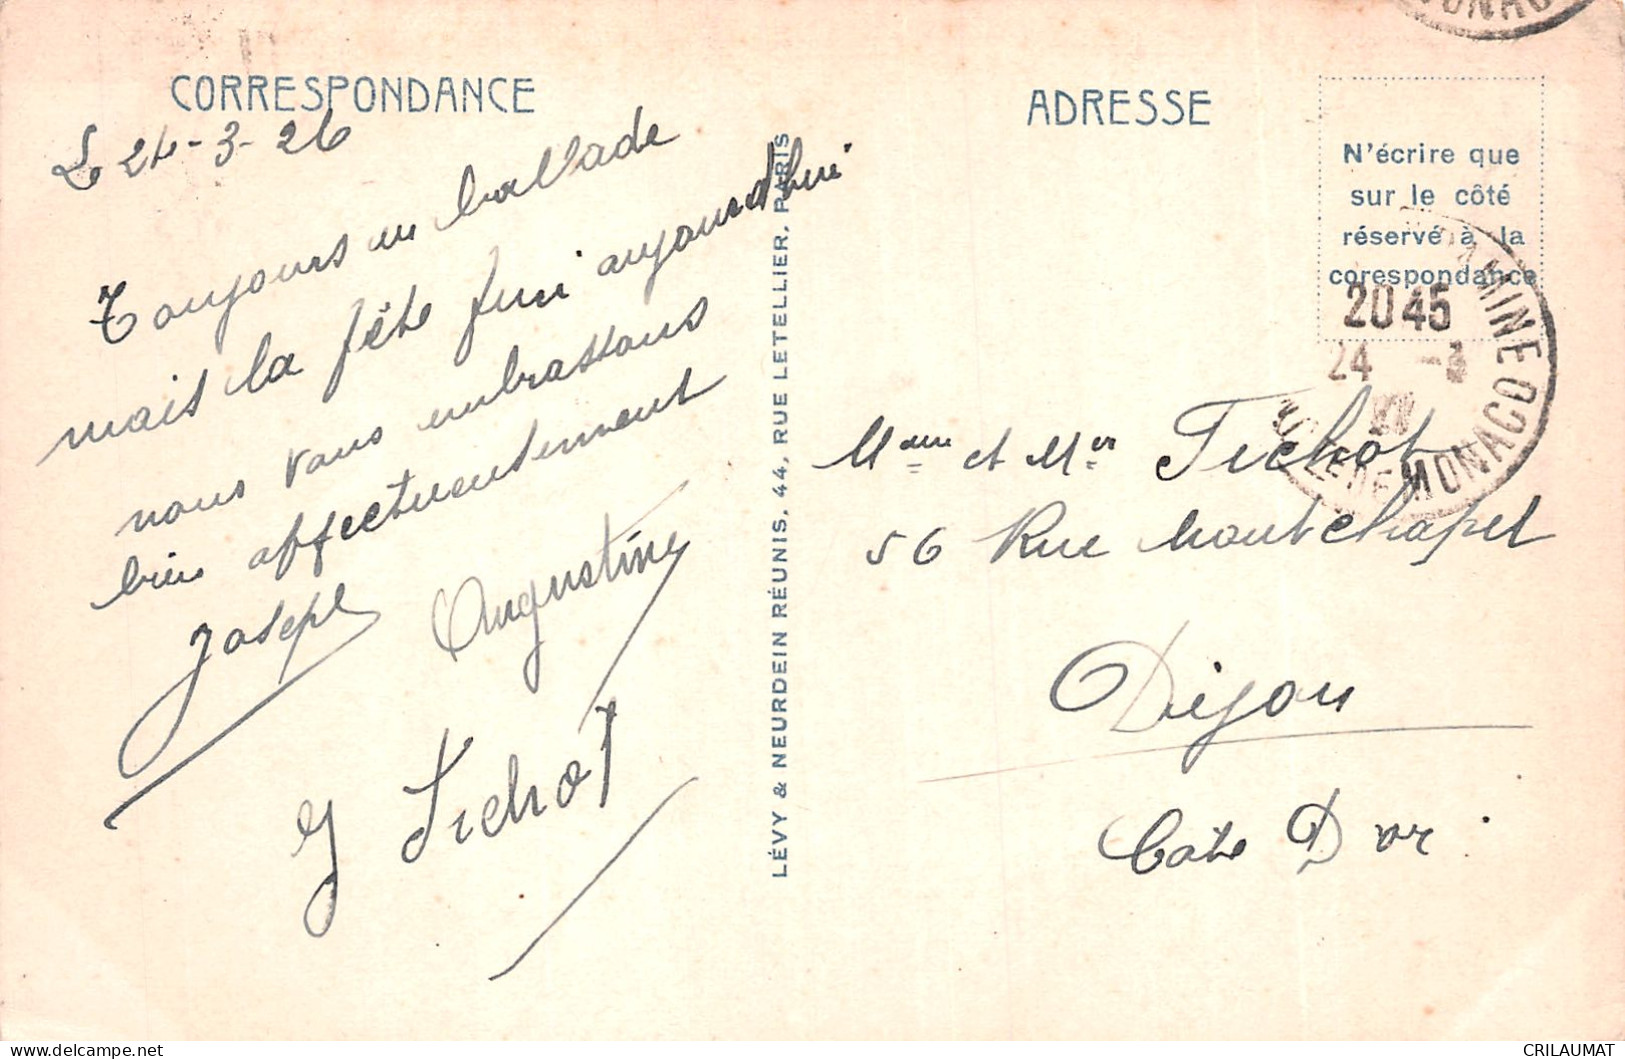 CORRESPONDANCE
L 24-3-26
Toujours en ballade
mais la fête fini aujourdhui
nous vous embrassons
bien affectueusement
Joseph Augustine
J Tichot
LÉVY & NEURDEIN RÉUNIS, 44, RUE LETELLIER, PARIS
ADRESSE
N'écrire que
sur le côté
réservé à la
corespondance
2045
24 -3
MONACO
Mame et Mer Tichot
56 Rue Montchapet
Dijon
Côte D'or
CRILAUMAT